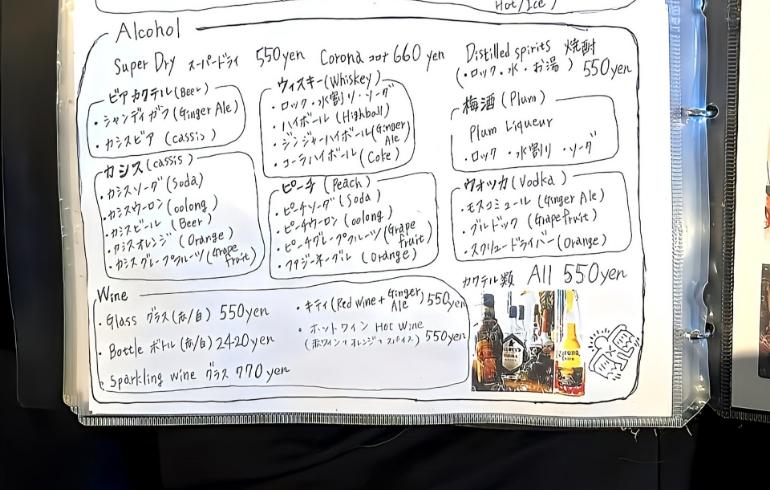 Hot/Ice)
Alcohol
Super Dry スーパードライ 550yen Corona コロナ 660 yen
Distilled spirits 焼酎
(・ロック・水・お湯) 550yen
ビアカクテル(Beer)
・シャンディガフ(Ginger Ale)
・カシスビア (cassis)
ウィスキー(Whiskey)
・ロック・水割り・ソーダ
・ハイボール (Highball)
・ジンジャーハイボール(Ginger Ale)
・コーラハイボール (Coke)
梅酒 (Plum)
Plum Liqueur
・ロック ・水割り ・ソーダ
カシス(cassis)
・カシスソーダ(Soda)
・カシスウーロン(oolong)
・カシスビール (Beer)
・カシスオレンジ (Orange)
・カシスグレープフルーツ(Grape fruit)
ピーチ (Peach)
・ピーチソーダ(Soda)
・ピーチウーロン (oolong)
・ピーチグレープフルーツ(Grape fruit)
・ファジーネーブル (Orange)
ウォッカ(Vodka)
・モスコミュール(Ginger Ale)
・ブルドック (Grapefruit)
・スクリュードライバー(Orange)
カクテル類 All 550yen
Wine
・Glass グラス(赤/白) 550yen
・Bottle ボトル(赤/白) 2420yen
・Sparkling wine グラス 770yen
・キティ(Red wine + Ginger Ale) 550yen
・ホットワイン Hot Wine 550yen
(赤ワイン+オレンジ+スパイス)